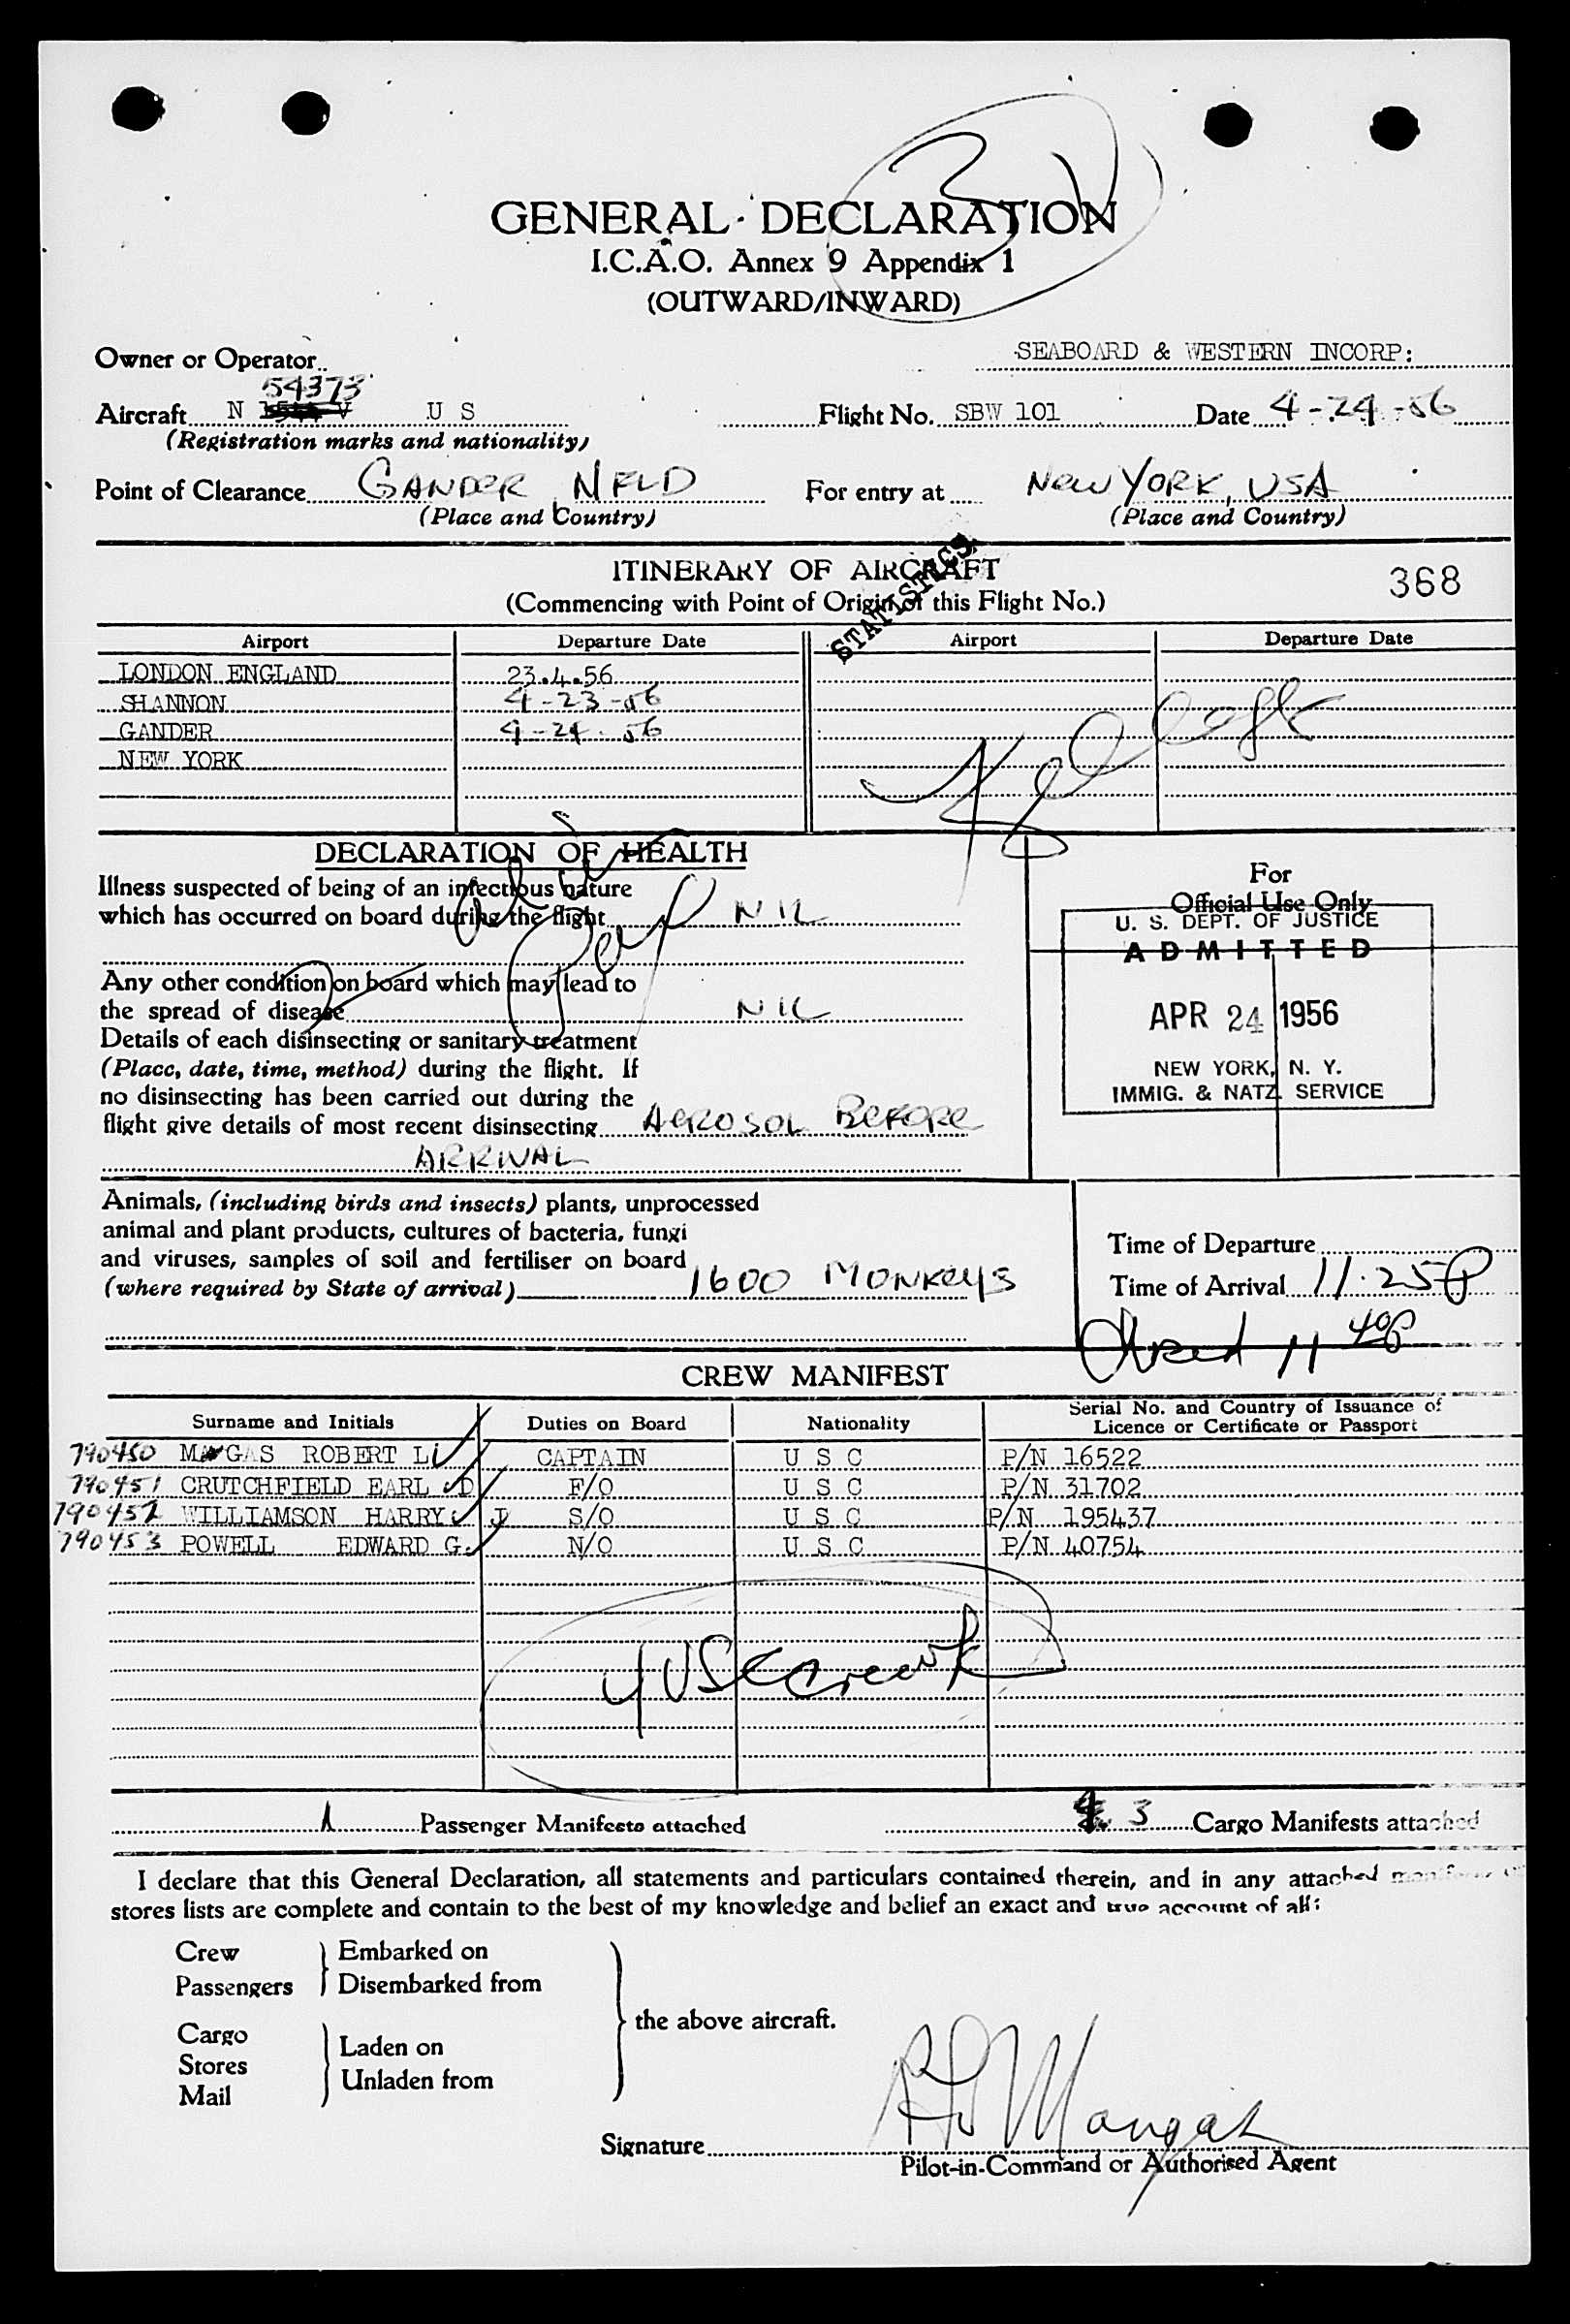 GENERAL DECLARATION
I.C.A.O. Annex 9 Appendix 1
(OUTWARD/INWARD)
Owner or Operator SEABOARD & WESTERN INCORP:
54373
Aircraft N U S Flight No. SBW 101 Date 4-24-56
(Registration marks and nationality)
Point of Clearance GANDER NFLD For entry at NEW YORK, USA
(Place and Country) (Place and Country)
STATISTICS
ITINERARY OF AIRCRAFT 368
(Commencing with Point of Origin of this Flight No.)
Airport Departure Date Airport Departure Date
LONDON ENGLAND 23.4.56
SHANNON 4-23-56
GANDER 4-24-56
NEW YORK
DECLARATION OF HEALTH
Illness suspected of being of an infectious nature
which has occurred on board during the flight NIL
Any other condition on board which may lead to
the spread of disease NIL
Details of each disinsecting or sanitary treatment
(Place, date, time, method) during the flight. If
no disinsecting has been carried out during the
flight give details of most recent disinsecting AEROSOL BEFORE
ARRIVAL
For
Official Use Only
U. S. DEPT. OF JUSTICE
ADMITTED
APR 24 1956
NEW YORK, N. Y.
IMMIG. & NATZ. SERVICE
Animals, (including birds and insects) plants, unprocessed
animal and plant products, cultures of bacteria, fungi
and viruses, samples of soil and fertiliser on board
(where required by State of arrival) 1600 MONKEYS
Time of Departure
Time of Arrival 11.25P
11 40P
CREW MANIFEST
Surname and Initials Duties on Board Nationality Serial No. and Country of Issuance of Licence or Certificate or Passport
790450 MANGAS ROBERT L CAPTAIN U S C P/N 16522
790451 CRUTCHFIELD EARL D F/O U S C P/N 31702
790452 WILLIAMSON HARRY J S/O U S C P/N 195437
790453 POWELL EDWARD G. N/O U S C P/N 40754
4 USC Crew
1 Passenger Manifests attached 3 Cargo Manifests attached
I declare that this General Declaration, all statements and particulars contained therein, and in any attached
stores lists are complete and contain to the best of my knowledge and belief an exact and true account of all:
Crew
Passengers
Embarked on
Disembarked from
Cargo
Stores
Mail
Laden on
Unladen from
the above aircraft.
Signature R L Mangas
Pilot-in-Command or Authorised Agent